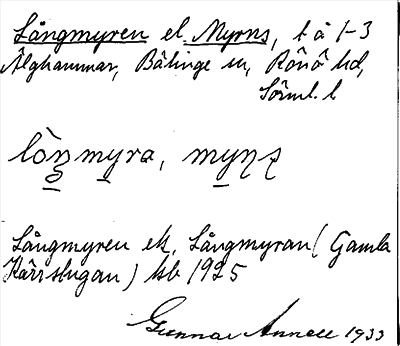 Långmyren el. Myrns, t å 1-3
Älghammar, Bälinge sn, Rönö hd,
Sörml. l
lòŋmyra, myṇṣ
Långmyren ek. Långmyran (Gamla
Kärrstugan) hb 1925
Gunnar Annell 1933